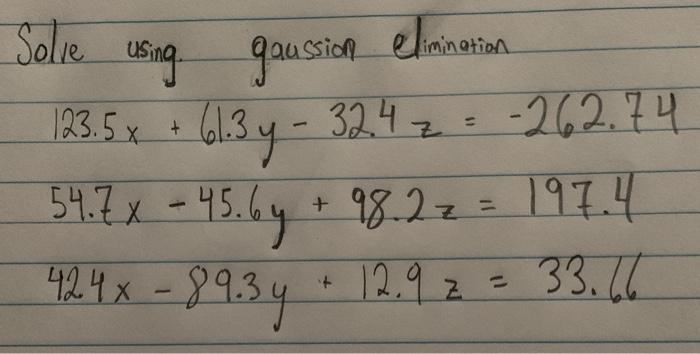 Solve using gaussion elimination
123.5x + 61.3y - 32.4z = -262.74
54.7x - 45.6y + 98.2z = 197.4
42.4x - 89.3y + 12.9z = 33.66